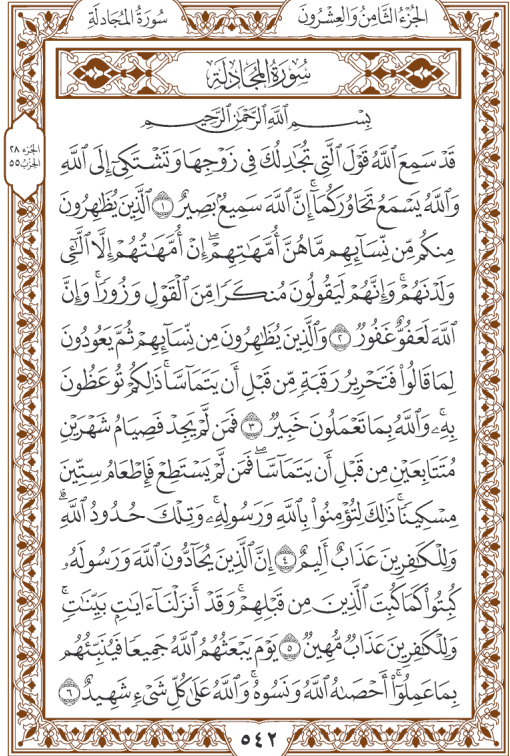 الجُزْءُ الثَّامِنُ وَالعِشْرُونَ
سُورَةُ المُجَادلَةِ
سُورَةُ المُجَادلَةِ
بِسْمِ ٱللَّهِ ٱلرَّحْمَٰنِ ٱلرَّحِيمِ
الجزء ٢٨
الحزب ٥٥
قَدْ سَمِعَ ٱللَّهُ قَوْلَ ٱلَّتِي تُجَٰدِلُكَ فِي زَوْجِهَا وَتَشْتَكِيٓ إِلَى ٱللَّهِ
وَٱللَّهُ يَسْمَعُ تَحَاوُرَكُمَآۚ إِنَّ ٱللَّهَ سَمِيعُۢ بَصِيرٌ ١ ٱلَّذِينَ يُظَٰهِرُونَ
مِنكُم مِّن نِّسَآئِهِم مَّا هُنَّ أُمَّهَٰتِهِمْۖ إِنْ أُمَّهَٰتُهُمْ إِلَّا ٱلَّٰٓـِٔي
وَلَدْنَهُمْۚ وَإِنَّهُمْ لَيَقُولُونَ مُنكَرٗا مِّنَ ٱلْقَوْلِ وَزُورٗاۚ وَإِنَّ
ٱللَّهَ لَعَفُوٌّ غَفُورٞ ٢ وَٱلَّذِينَ يُظَٰهِرُونَ مِن نِّسَآئِهِمْ ثُمَّ يَعُودُونَ
لِمَا قَالُوا۟ فَتَحْرِيرُ رَقَبَةٖ مِّن قَبْلِ أَن يَتَمَآسَّاۚ ذَٰلِكُمْ تُوعَظُونَ
بِهِۦۚ وَٱللَّهُ بِمَا تَعْمَلُونَ خَبِيرٞ ٣ فَمَن لَّمْ يَجِدْ فَصِيَامُ شَهْرَيْنِ
مُتَتَابِعَيْنِ مِن قَبْلِ أَن يَتَمَآسَّاۖ فَمَن لَّمْ يَسْتَطِعْ فَإِطْعَامُ سِتِّينَ
مِسْكِينٗاۚ ذَٰلِكَ لِتُؤْمِنُوا۟ بِٱللَّهِ وَرَسُولِهِۦۚ وَتِلْكَ حُدُودُ ٱللَّهِۗ
وَلِلْكَٰفِرِينَ عَذَابٌ أَلِيمٌ ٤ إِنَّ ٱلَّذِينَ يُحَآدُّونَ ٱللَّهَ وَرَسُولَهُۥ
كُبِتُوا۟ كَمَا كُبِتَ ٱلَّذِينَ مِن قَبْلِهِمْۚ وَقَدْ أَنزَلْنَآ ءَايَٰتِۭ بَيِّنَٰتٖۚ
وَلِلْكَٰفِرِينَ عَذَابٞ مُّهِينٞ ٥ يَوْمَ يَبْعَثُهُمُ ٱللَّهُ جَمِيعٗا فَيُنَبِّئُهُم
بِمَا عَمِلُوٓا۟ۚ أَحْصَىٰهُ ٱللَّهُ وَنَسُوهُۚ وَٱللَّهُ عَلَىٰ كُلِّ شَيْءٖ شَهِيدٌ ٦
٥٤٢